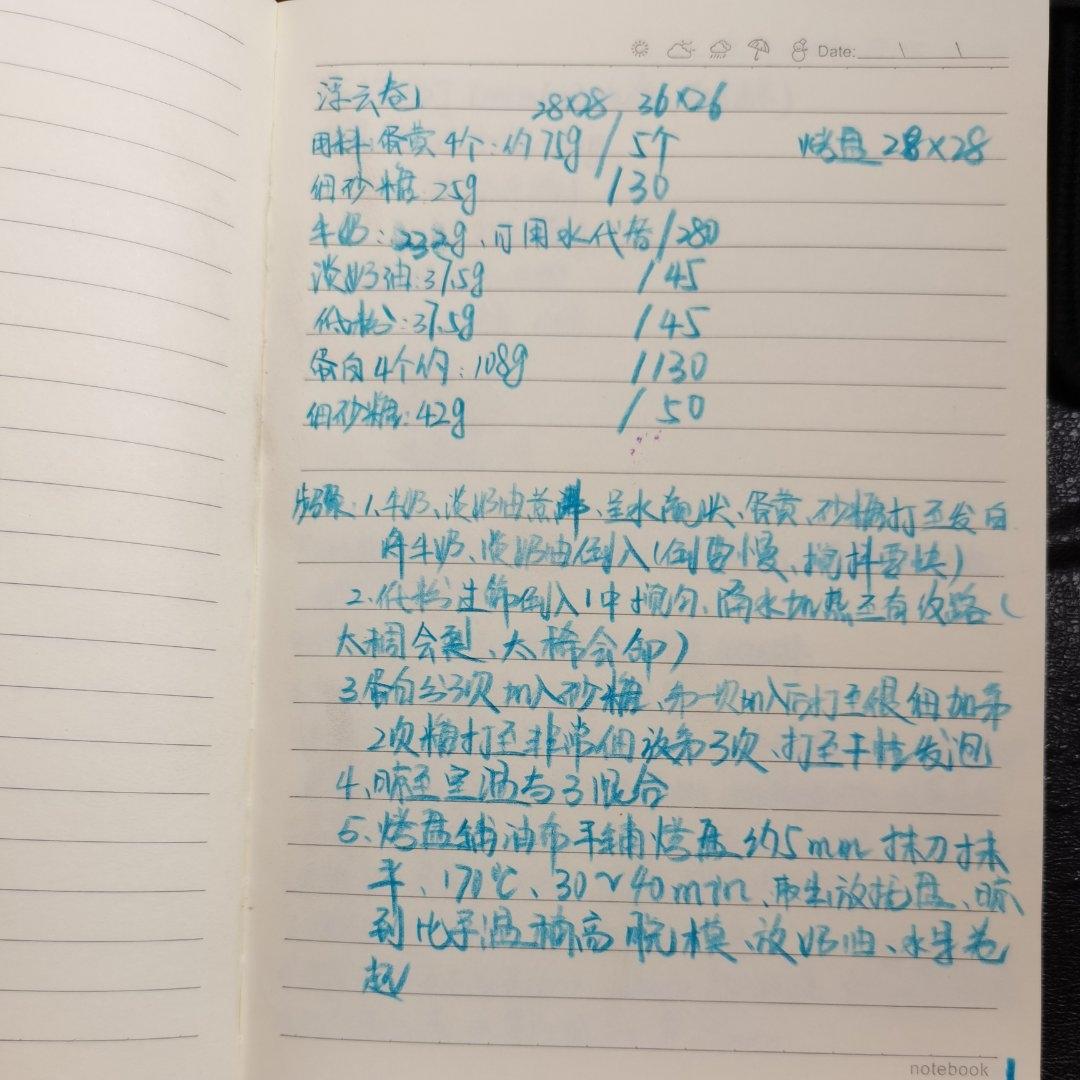 Date:
浮云卷 28×28 36×26
用料:蛋黄4个:约75g / 5个 烤盘28×28
细砂糖:25g /30
牛奶:232g、可用水代替/280
淡奶油:37.5g /45
低粉:37.5g /45
蛋白4个约:108g /130
细砂糖:42g / 50
步骤:1、牛奶、淡奶油煮沸、呈水滴状、蛋黄、砂糖打至发白
牛奶、淡奶油倒入(倒要慢、搅拌要快)
2、低粉过筛倒入1中搅匀、隔水加热至有纹路(
太稠会裂、太稀会)
3、蛋白分3次加入砂糖、第一次加入后打至很细加第
2次糖打至非常细放第3次、打至干性发泡
4、晾至室温与3混合
5、烤盘铺油布平铺烤盘约5mm抹刀抹
平、170℃、30~40min、取出放托盘、晾
到比手温稍高脱模、放奶油、水果卷
起
notebook